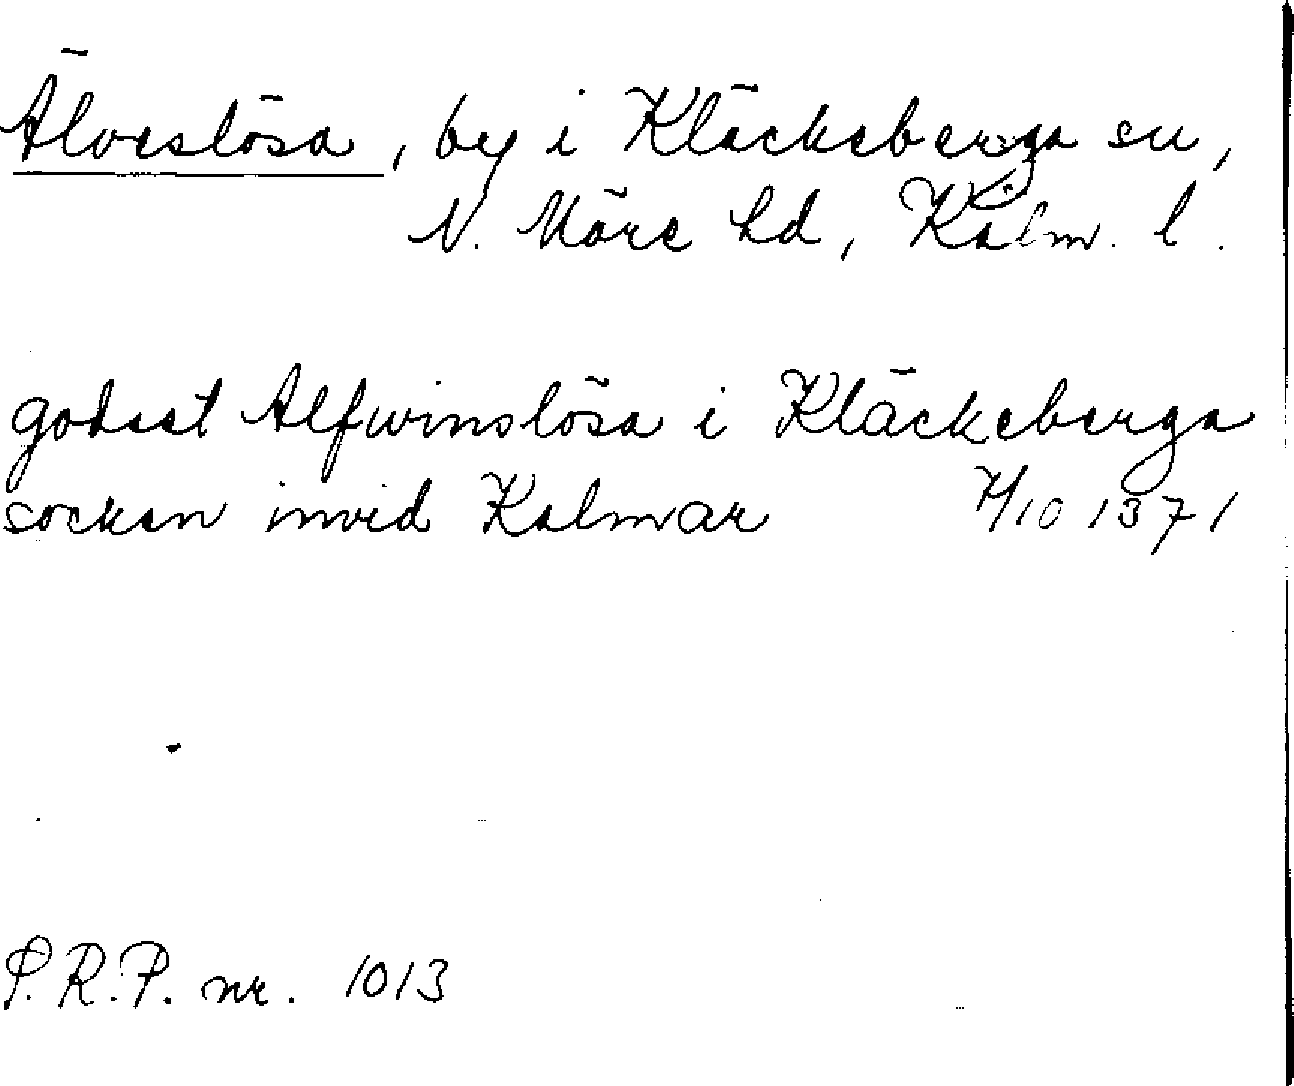 Älveslösa, by i Kläckeberga sn,
N. Möre hd, Kalm. l.
godset Alfwinslösa i Kläckeberga
socken invid Kalmar 7/10 1371
P.R.P. nr. 1013